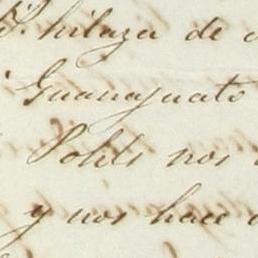 hilaza de
Guanajuato
Pohls nos
y nos hace